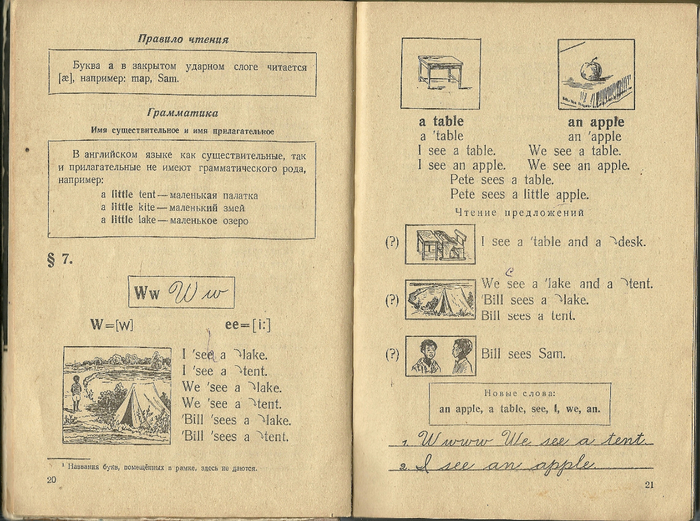 Правило чтения
Буква а в закрытом ударном слоге читается
[æ], например: map, Sam.
Грамматика
Имя существительное и имя прилагательное
В английском языке как существительные, так
и прилагательные не имеют грамматического рода,
например:
a little tent—маленькая палатка
a little kite—маленький змей
a little lake—маленькое озеро
§ 7.
Ww W w
W=[w] ee=[i:]
I 'see a ⤵lake.
I 'see a ⤵tent.
We 'see a ⤵lake.
We 'see a ⤵tent.
'Bill 'sees a ⤵lake.
'Bill 'sees a ⤵tent.
¹ Названия букв, помещённых в рамке, здесь не даются.
20
a table an apple
a 'table an 'apple
I see a table. We see a table.
I see an apple. We see an apple.
Pete sees a table.
Pete sees a little apple.
Чтение предложений
(?) I see a 'table and a ⤵desk.
We see a 'lake and a ⤵tent.
(?) 'Bill sees a ⤵lake.
Bill sees a tent.
(?) Bill sees Sam.
Новые слова:
an apple, a table, see, I, we, an.
1. W www We see a tent.
2. I see an apple.
21